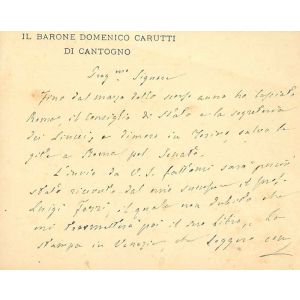 IL BARONE DOMENICO CARUTTI
DI CANTOGNO
Preg.mo Signore
Fino dal marzo dello scorso anno ho lasciato
Roma, il Consiglio di Stato e la segreteria
dei Lincei, e dimoro in Torino, salvo le
gite a Roma pel Senato.
L'invio da V. S. fattomi sarà perciò
stato ricevuto dal mio successore il prof.
Luigi Ferri, il quale non dubito che
mi trasmetterà poi il suo libro. La
stampa in Venezia che leggere con